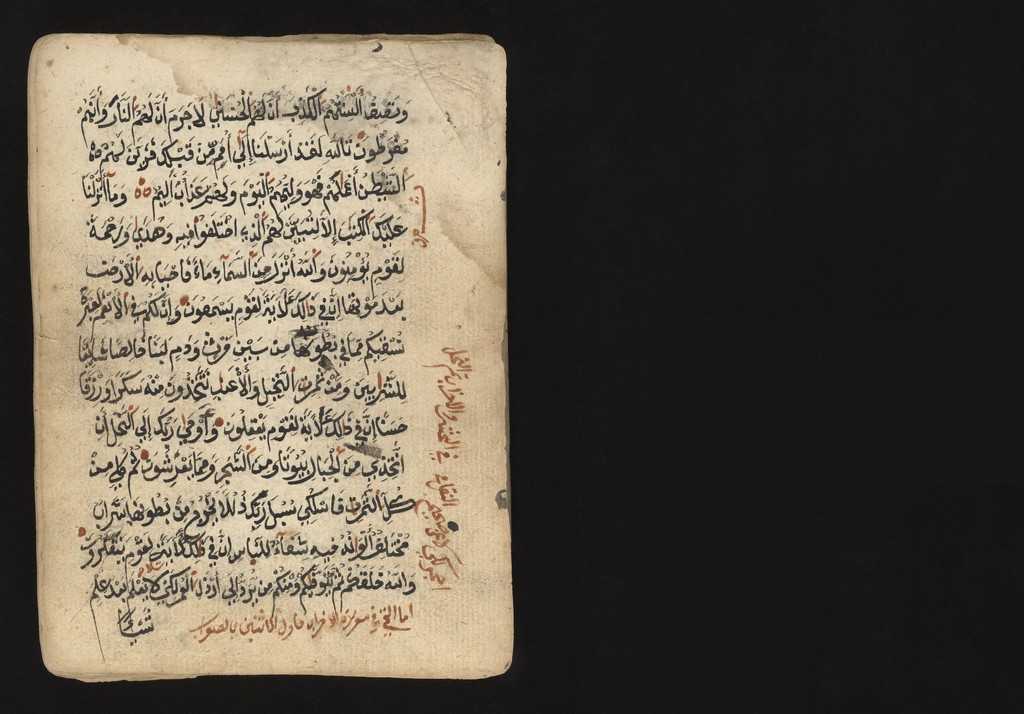 وتصف ألسنتهم الكذب أن لهم الحسنى لا جرم أن لهم النار وأنهم
مفرطون تالله لقد أرسلنا إلى أمم من قبلك فزين لهم
الشيطن أعملهم فهو وليهم اليوم ولهم عذاب أليم وما أنزلنا
عليك الكتب إلا لتبين لهم الذي اختلفوا فيه وهدى ورحمة
لقوم يؤمنون والله أنزل من السماء ماء فاحيا به الأرض
بعد موتها إن في ذلك لأية لقوم يسمعون وإن لكم في الأنعم لعبرة
نسقيكم مما في بطونها من بين فرث ودم لبنا خالصا سايغا
للشربين ومن ثمرت النخيل والأعنب تتخذون منه سكرا ورزقا
حسنا إن في ذلك لأية لقوم يعقلون وأوحى ربك إلى النحل أن
اتخذي من الجبال بيوتا ومن الشجر ومما يعرشون ثم كلي من
كل الثمرت فاسلكي سبل ربك ذللا يخرج من بطونها شراب
مختلف ألوانه فيه شفاء للناس إن في ذلك لأية لقوم يتفكرون
والله خلقكم ثم يتوفيكم ومنكم من يرد إلى أرذل العمر لكي لا يعلم بعد علم
شيئا